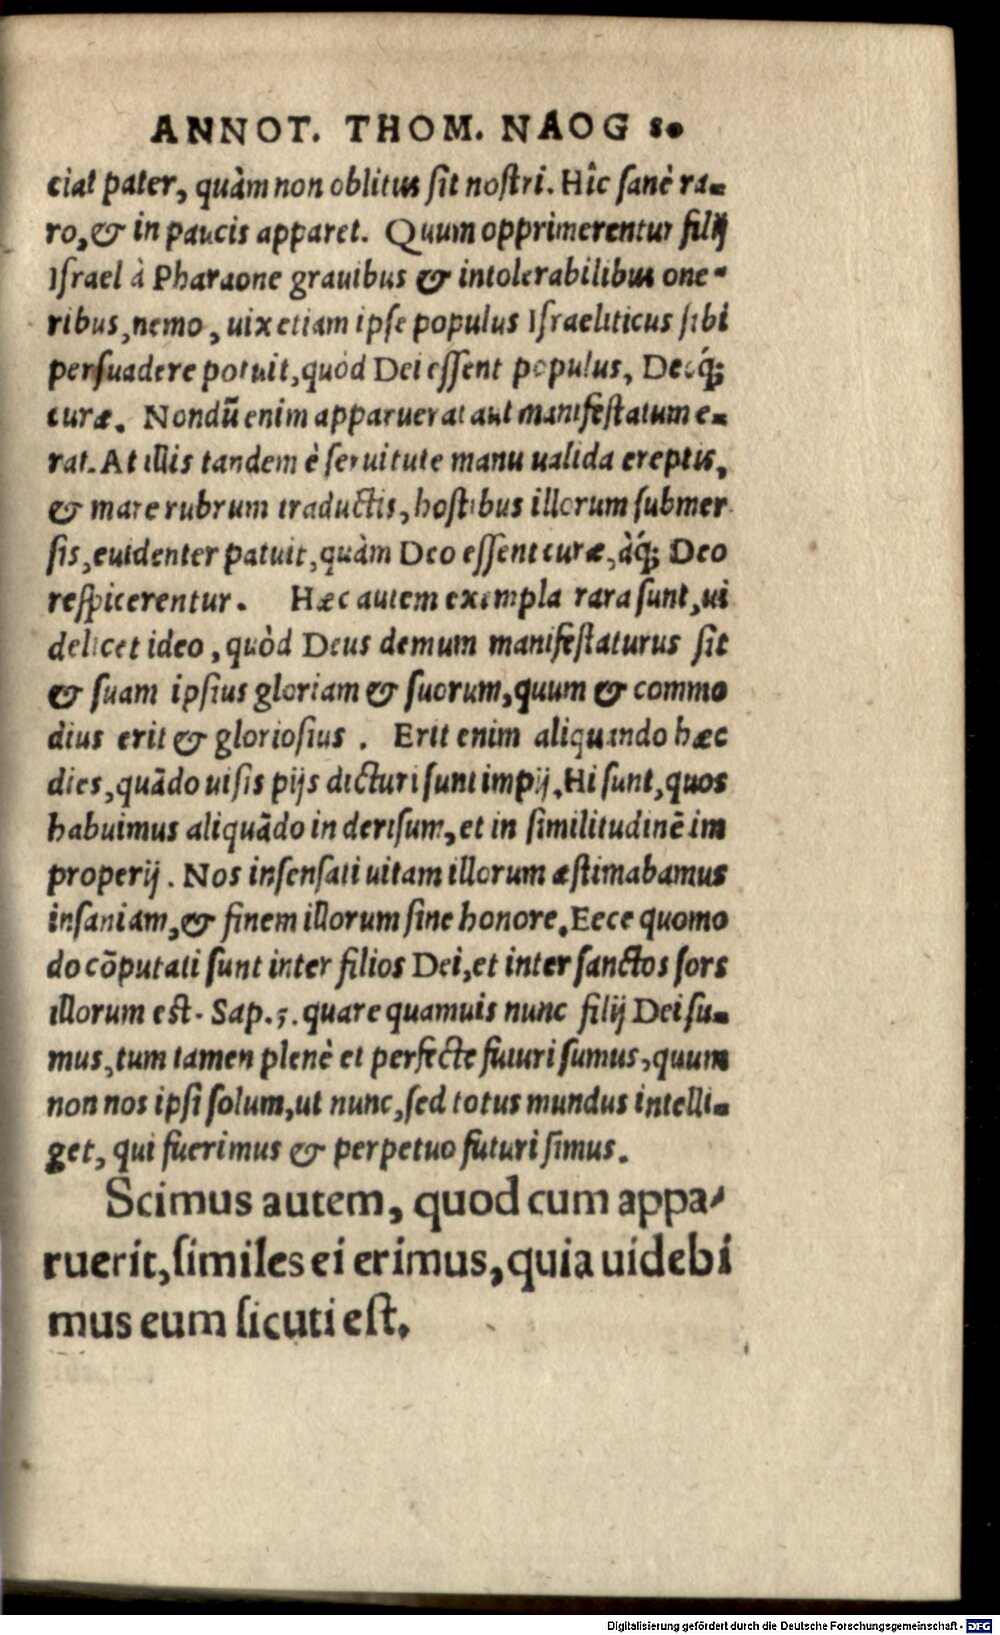 ANNOT. THOM. NAOG 80
ciat pater, quàm non oblitus sit nostri. Hîc sanè ra-
ro, & in paucis apparet. Quum opprimerentur filij
Israel à Pharaone grauibus & intolerabilibus one-
ribus, nemo, uix etiam ipse populus Israeliticus sibi
persuadere potuit, quòd Dei essent populus, Deoq́;
curæ. Nondū enim apparuerat aut manifestatum e-
rat. At illis tandem è seruitute manu ualida ereptis,
& mare rubrum traductis, hostibus illorum submer
sis, euidenter patuit, quàm Deo essent curæ, àq́; Deo
respicerentur. Hæc autem exempla rara sunt, ui
delicet ideo, quòd Deus demum manifestaturus sit
& suam ipsius gloriam & suorum, quum & commo
dius erit & gloriosius. Erit enim aliquando hæc
dies, quādo uisis pijs dicturi sunt impij, Hi sunt, quos
habuimus aliquādo in derisum, et in similitudinē im
properij. Nos insensati uitam illorum æstimabamus
insaniam, & finem illorum sine honore, Ecce quomo
do cōputati sunt inter filios Dei, et inter sanctos sors
illorum est. Sap. 5. quare quamuis nunc filij Dei su-
mus, tum tamen plenè et perfecte futuri sumus, quum
non nos ipsi solum, ut nunc, sed totus mundus intelli-
get, qui fuerimus & perpetuo futuri simus.
Scimus autem, quod cum appa-
ruerit, similes ei erimus, quia uidebi
mus eum sicuti est.
Digitalisierung gefördert durch die Deutsche Forschungsgemeinschaft - DFG